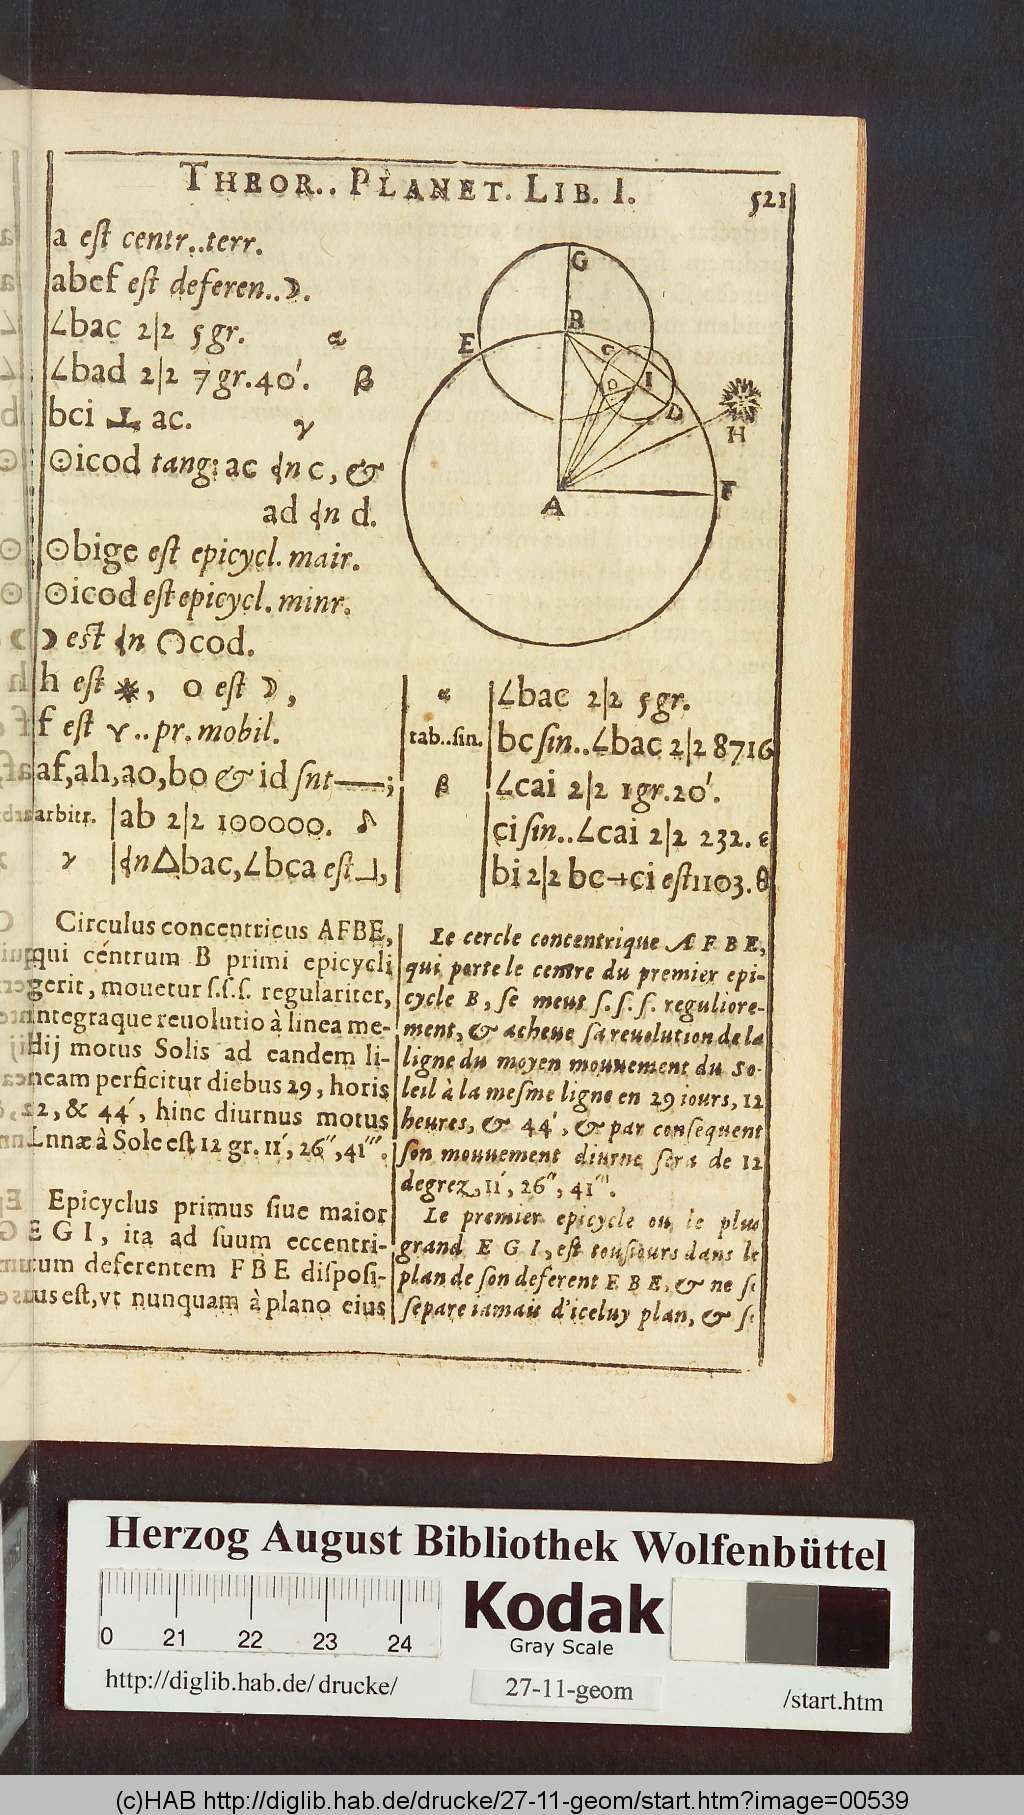 THEOR.. PLANET. LIB. I. 521
a eſt centr..terr.
abef eſt deferen..☽.
∠bac 2|2 5gr. α
∠bad 2|2 7gr.40′. β
bci ⊥ ac. γ
⊙icod tang: ac ɖn c, &
ad ɖn d.
⊙bige eſt epicycl. mair.
⊙icod eſt epicycl. minr.
☽ eſt ɖn ◠cod.
h eſt ☀, o eſt ☽,
f eſt ♈..pr. mobil.
af, ah, ao, bo & id ſnt —;
arbitr. |ab 2|2 100000. δ
γ |ɖn△bac, ∠bca eſt ⅃,
G
B
E
C
I
O
D
H
A
F
α |∠bac 2|2 5gr.
tab..ſin. |bc ſin..∠bac 2|2 8716
β |∠cai 2|2 1gr.20′.
ci ſin..∠cai 2|2 232. ε
bi 2|2 bc+ci eſt 1103. θ
Circulus concentricus AFBE,
qui centrum B primi epicycli
gerit, mouetur ſ.ſ.ſ. regulariter,
integraque reuolutio à linea me-
dij motus Solis ad eandem li-
neam perficitur diebus 29, horis
12, & 44′, hinc diurnus motus
Lnnæ à Sole eſt 12 gr. 11′, 26″, 41‴.
Epicyclus primus ſiue maior
E G I, ita ad ſuum eccentri-
cum deferentem F B E diſpoſi-
tus eſt, vt nunquam à plano eius
Le cercle concentrique A F B E,
qui porte le centre du premier epi-
cycle B, ſe meut ſ. ſ. ſ. reguliore-
ment, & acheue ſa reuolution de la
ligne du moyen mouuement du So-
leil à la meſme ligne en 29 iours, 12
heures, & 44′, & par conſequent
ſon mouuement diurne ſera de 12
degrez, 11′, 26″, 41‴.
Le premier epicycle ou le plus
grand E G I, eſt touſiours dans le
plan de ſon deferent E B E, & ne ſe
ſepare iamais d'iceluy plan, & ſe
Herzog August Bibliothek Wolfenbüttel
0 21 22 23 24
Kodak
Gray Scale
http://diglib.hab.de/drucke/ 27-11-geom /start.htm
(c)HAB http://diglib.hab.de/drucke/27-11-geom/start.htm?image=00539